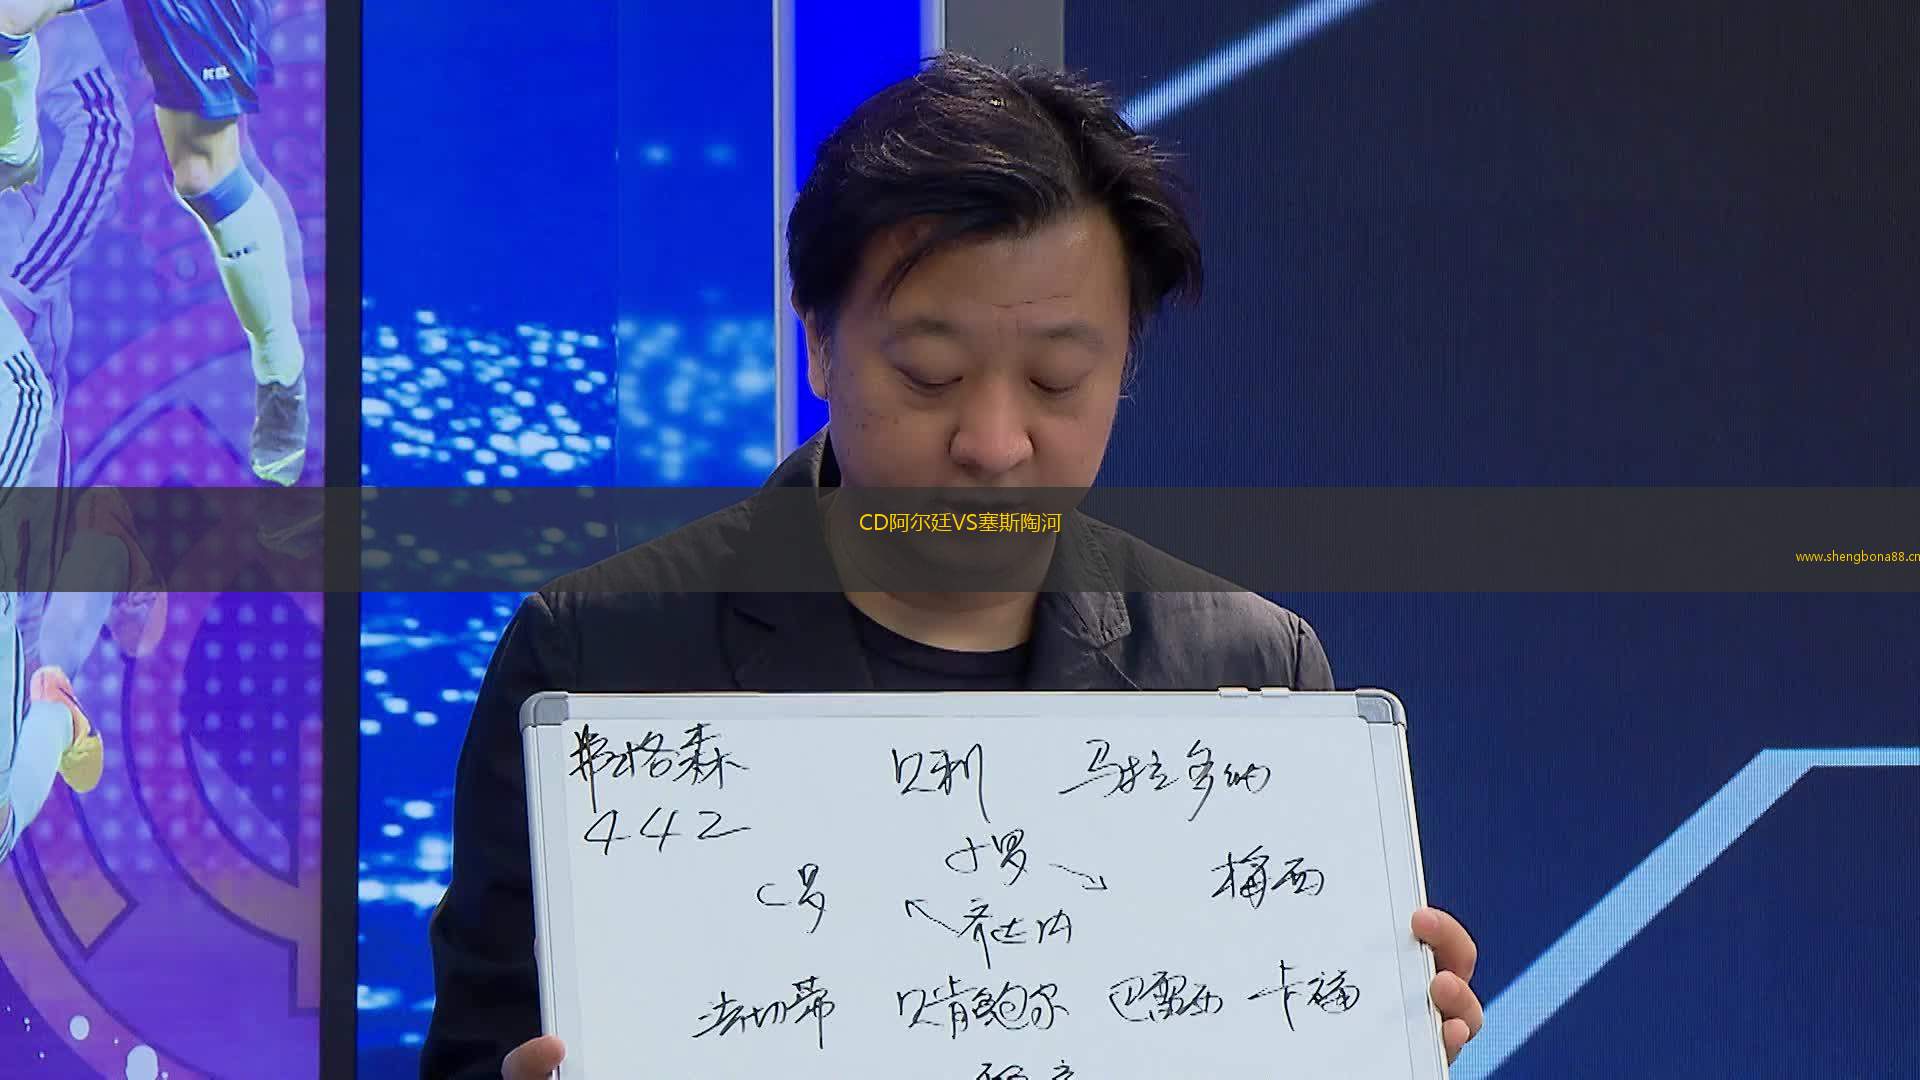 KEL
CD阿尔廷VS塞斯陶河
www.shengbona88.cn
弗格森 贝利 马拉多纳
442
小罗
C罗 梅西
齐达内
法切蒂 贝肯鲍尔 巴雷西 卡福